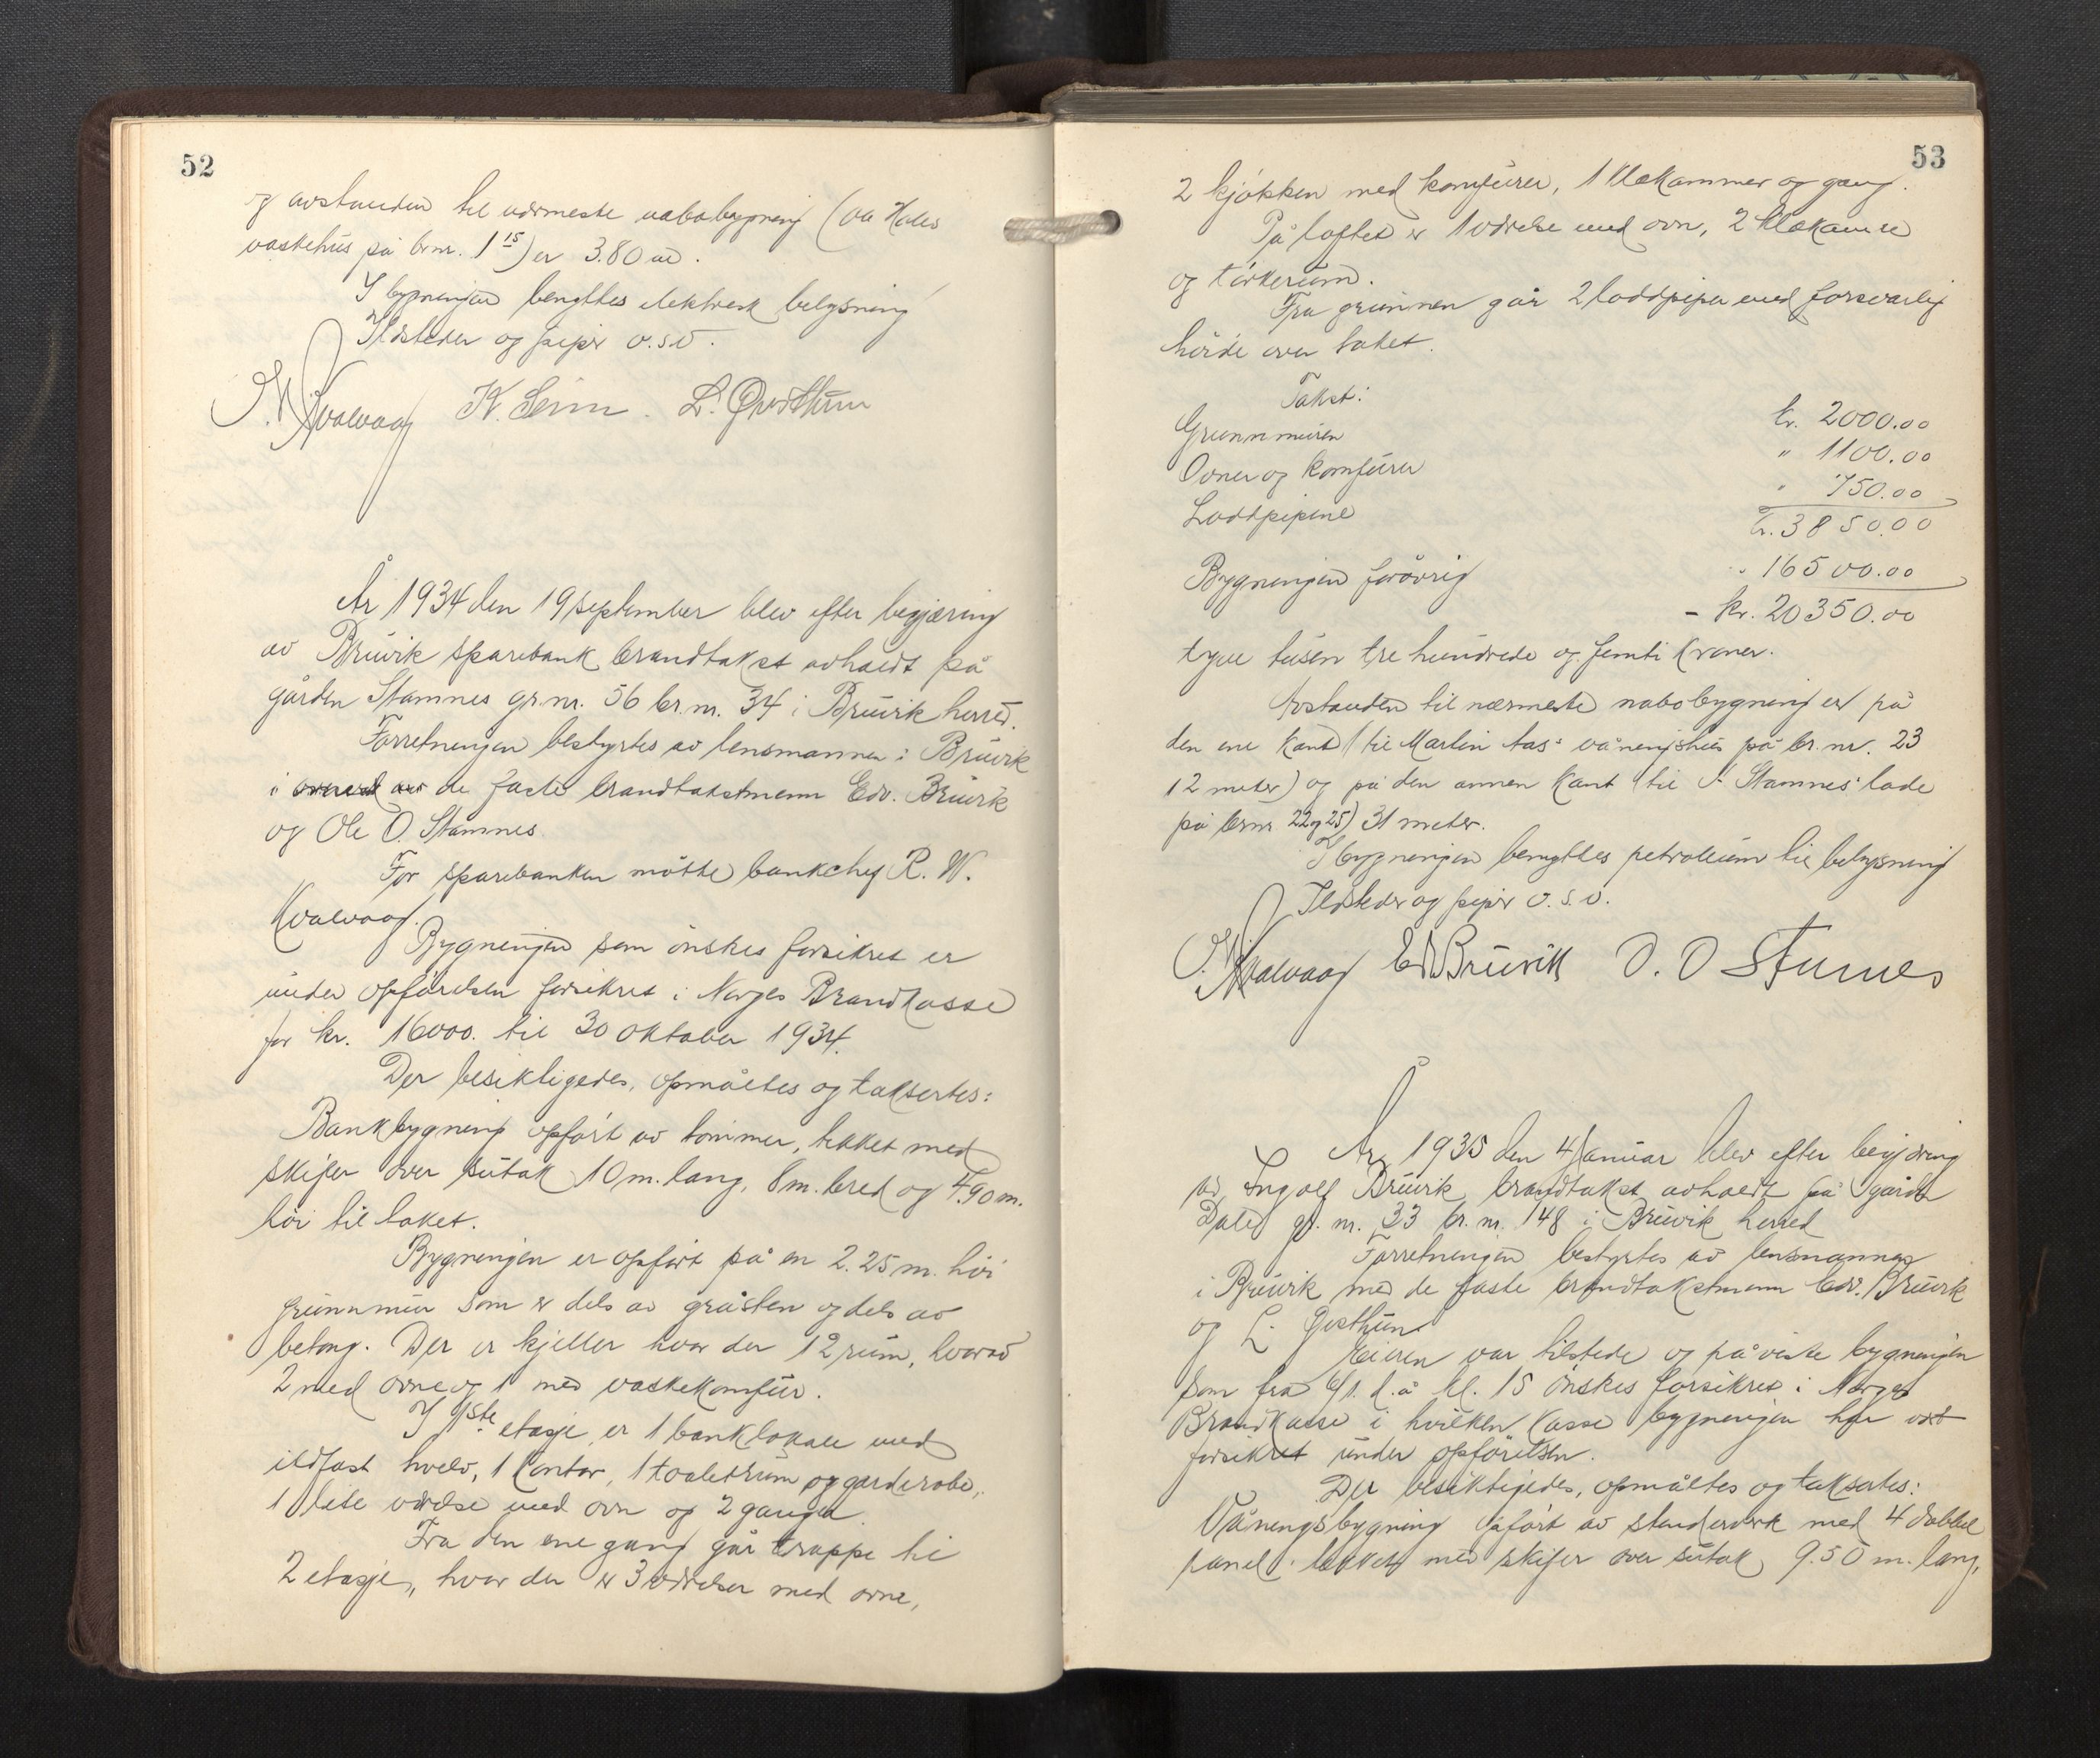 52
og avstanden til nærmeste nabobygning (
vaskehus på brnr. 1 15) er 3.80 m.
I bygningen benyttes elektrisk belysning
Ildsteder og piper o.s.v.
Kvalvaag K. Seim. L.
År 1934 den 19 september blev efter begjæring
av Bruvik sparebank brandtakst avholdt på
gården Stamnes gr.nr. 56 br.nr. 34 i Bruvik herred.
Forretningen bestyrtes av lensmannen i Bruvik
i de faste brandtakstmenn Edv. Bruvik
og Ole O. Stamnes.
For sparebanken møtte bankchef R. W.
Kvalvaag.
Bygningen som önskes forsikret er
under opförelsen forsikret i Norges Brandkasse
for kr. 16000. til 30 oktober 1934.
Der besiktigedes, opmåltes og taksertes:
Bankbygning opfört av tömmer, tekket med
skifer over sutak 10 m. lang, 8 m. bred og 4.90 m.
höi til taket.
Bygningen er opfört på en 2.25 m. höi
grunnmur som er dels av gråsten og dels av
betong. Der er kjeller hvor der 12 rum, hvorav
2 med ovne og 1 med vaskekomfur.
I 1ste etasje er 1 banklokale med
ildfast hvelv, 1 kontor, 1 toaletrum og garderobe,
1 lite værelse med ovn og 2 ganger.
Fra den ene gang går trappe til
2 etasje, hvor der er 3 værelser med ovne,
53
2 kjökken med komfurer, 1 klækammer og gang.
På loftet er 1 værelse med ovn, 2 klækamre
og törkerum.
Fra grunnen går 2 loddpiper med forsvarlig
höide over taket.
Takst:
Grunnmuren kr. 2000.00
Ovner og komfurer " 1100.00
Loddpipene " 750.00
kr. 3850.00
Bygningen forövrig " 16500.00
- kr. 20350.00
tyve tusen tre hundrede og femti kroner.
Avstanden til nærmeste nabobygning er på
den ene kant (til Martin Aas' våningshus på br.nr. 23
12 meter) og på den annen kant (til Stamnes' lade
på brnr 22 og 25) 31 meter.
I bygningen benyttes petroleum til belysning
Ildsteder og piper o.s.v.
Kvalvaag Edv Bruvik O. O Stamnes
År 1935 den 4 Januar blev efter begjæring
av Ingolf Bruvik brandtakst avholdt på gården
Dale gr. nr. 33 br. nr. 148 i Bruvik herred
Forretningen bestyrtes av lensmannen
i Bruvik med de faste brandtakstmenn Edv. Bruvik
og L.
Eieren var tilstede og påviste bygningen
som fra d.å kl. 15 önskes forsikret i Norges
Brandkasse i hvilken kasse bygningen har vært
forsikret under opförelsen.
Der besiktigedes, opmåltes og taksertes:
Våningsbygning opfört av stenderverk med 4 dobbel
panel, tekket med skifer over sutak 9.50 m. lang,